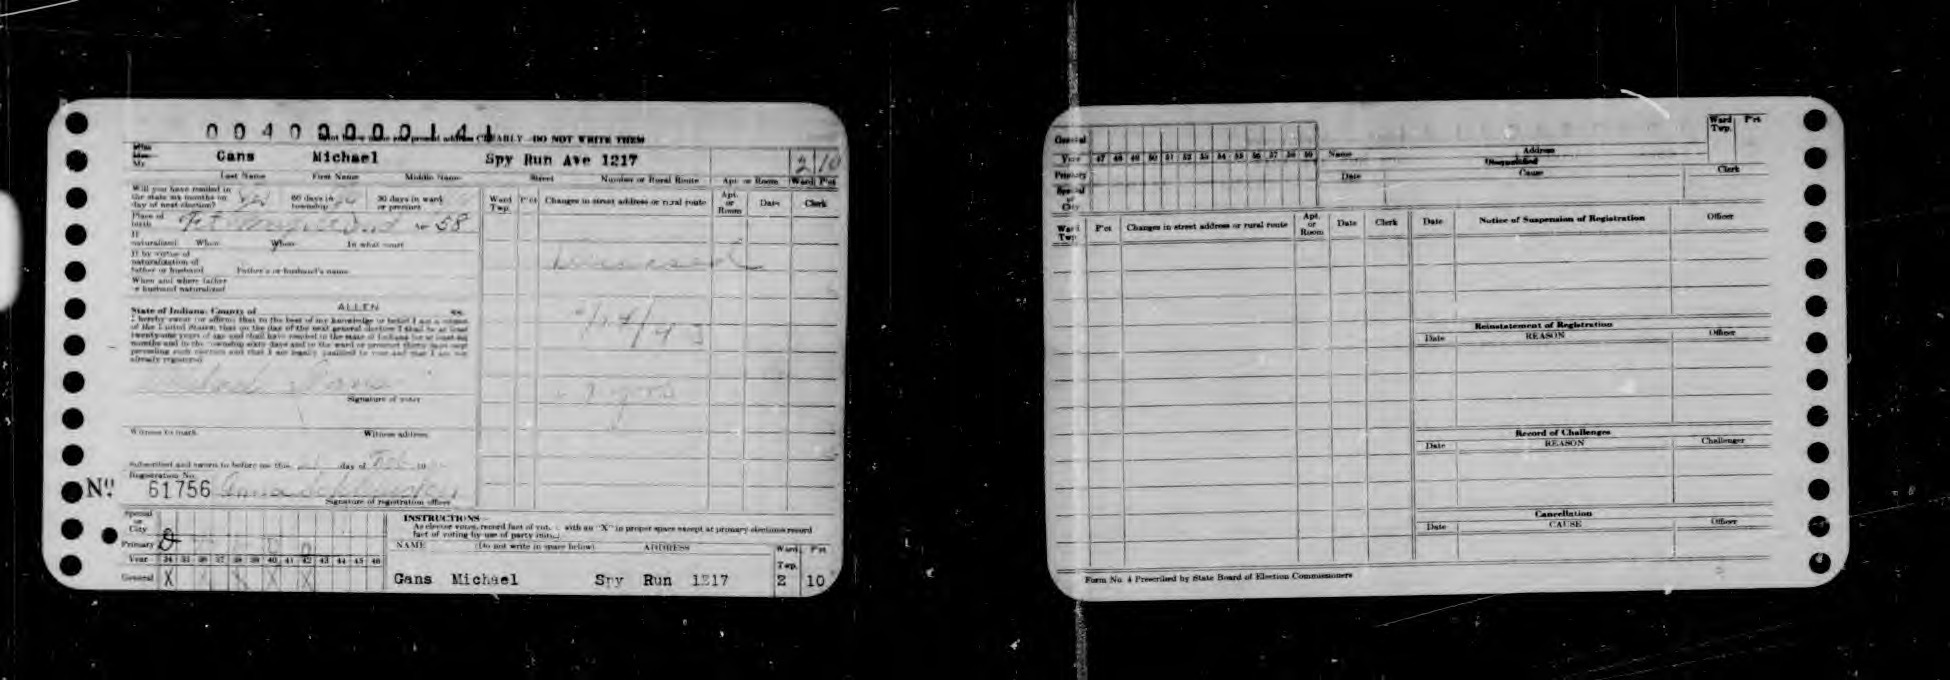 0040000141
CLEARLY DO NOT WRITE THEM
Miss
Mrs.
Mr.
Gans Michael Spy Run Ave 1217 2 10
Last Name First Name Middle Name Street Number or Rural Route Apt. or Room Ward Pct
Will you have resided in
the state six months on
day of next election? Yes 60 days in township 30 days in ward or precinct
Ward Twp. Pct Changes in street address or rural route Apt. or Room Date Clerk
Place of birth Ft Wayne Ind Age 58
If naturalized When Where In what court
If by virtue of
naturalization of
father or husband Father's or husband's name
When and where father
or husband naturalized
Deceased
State of Indiana, County of ALLEN ss.
I hereby swear (or affirm) that to the best of my knowledge or belief I am a citizen
of the United States; that on the day of the next general election I shall be at least
twenty-one years of age and shall have resided in the state of Indiana for at least six
months and in the township sixty days and in the ward or precinct thirty days next
preceding such election and that I am legally qualified to vote and that I am not
already registered
Michael Gans
Signature of voter
Witness to mark Witness address
Subscribed and sworn to before me this day of Feb 19
Registration No.
No. 61756 Anna
Signature of registration officer
Special or City
Primary D
Year 34 35 36 37 38 39 40 41 42 43 44 45 46
General X X X X X
INSTRUCTIONS
As elector votes, record fact of voting with an "X" in proper space except at primary elections record
fact of voting by use of party initial.
NAME (Do not write in space below) ADDRESS Ward Twp. Pct.
Gans Michael Spy Run 1217 2 10
General
Year 47 48 49 50 51 52 53 54 55 56 57 58 59
Primary
Special or City
Name Address Ward Twp. Pct
Disqualified
Date Cause Clerk
Ward Twp Pct Changes in street address or rural route Apt. or Room Date Clerk
Date Notice of Suspension of Registration Officer
Reinstatement of Registration
Date REASON Officer
Record of Challenges
Date REASON Challenger
Cancellation
Date CAUSE Officer
Form No. 4 Prescribed by State Board of Election Commissioners